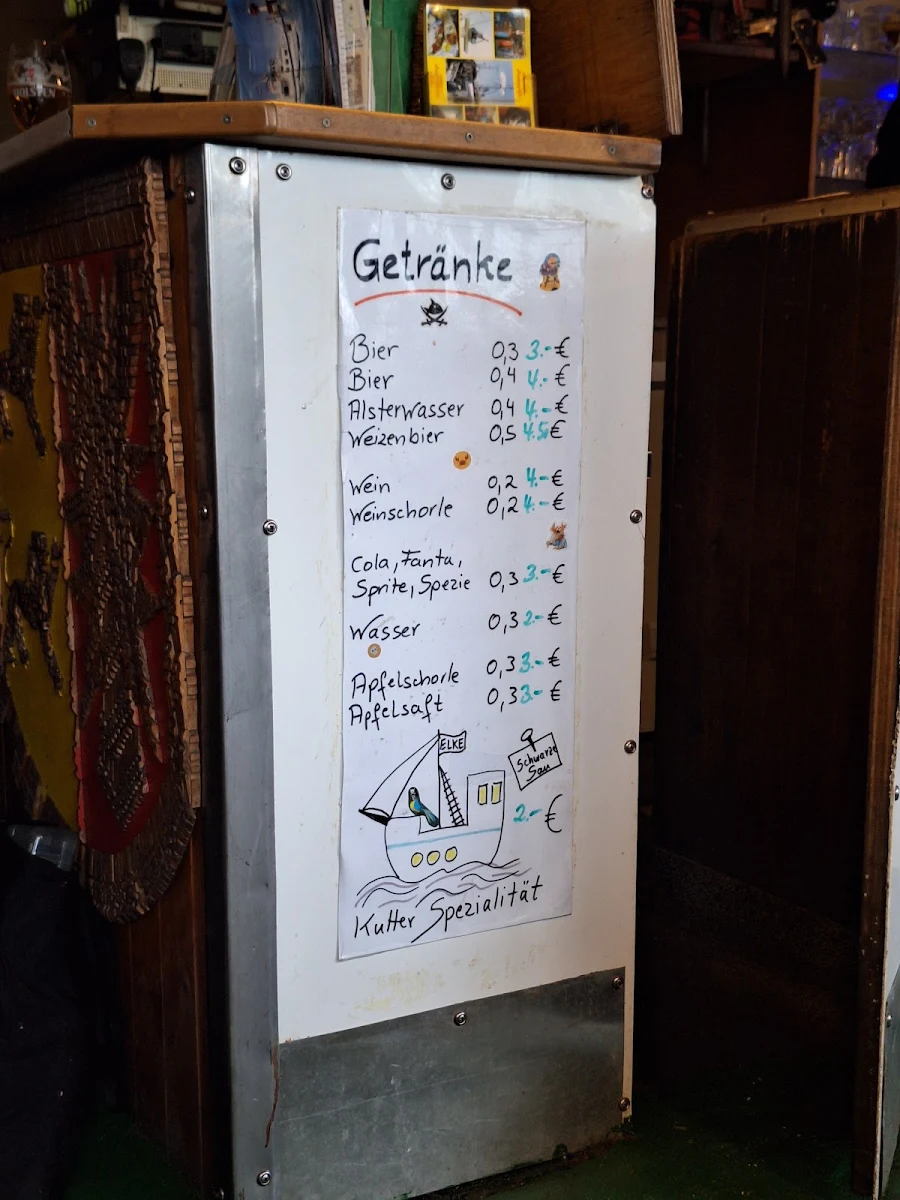 HOLSTEN
Getränke
Bier 0,3 3.-€
Bier 0,4 4.- €
Alsterwasser 0,4 4.-€
Weizenbier 0,5 4.5€
Wein 0,2 4.-€
Weinschorle 0,2 4.-€
Cola, Fanta,
Sprite, Spezie 0,3 3.-€
Wasser 0,3 2.-€
Apfelschorle 0,3 3.-€
Apfelsaft 0,3 3.-€
ELKE
Schwarze
Sau
2.- €
Kutter Spezialität